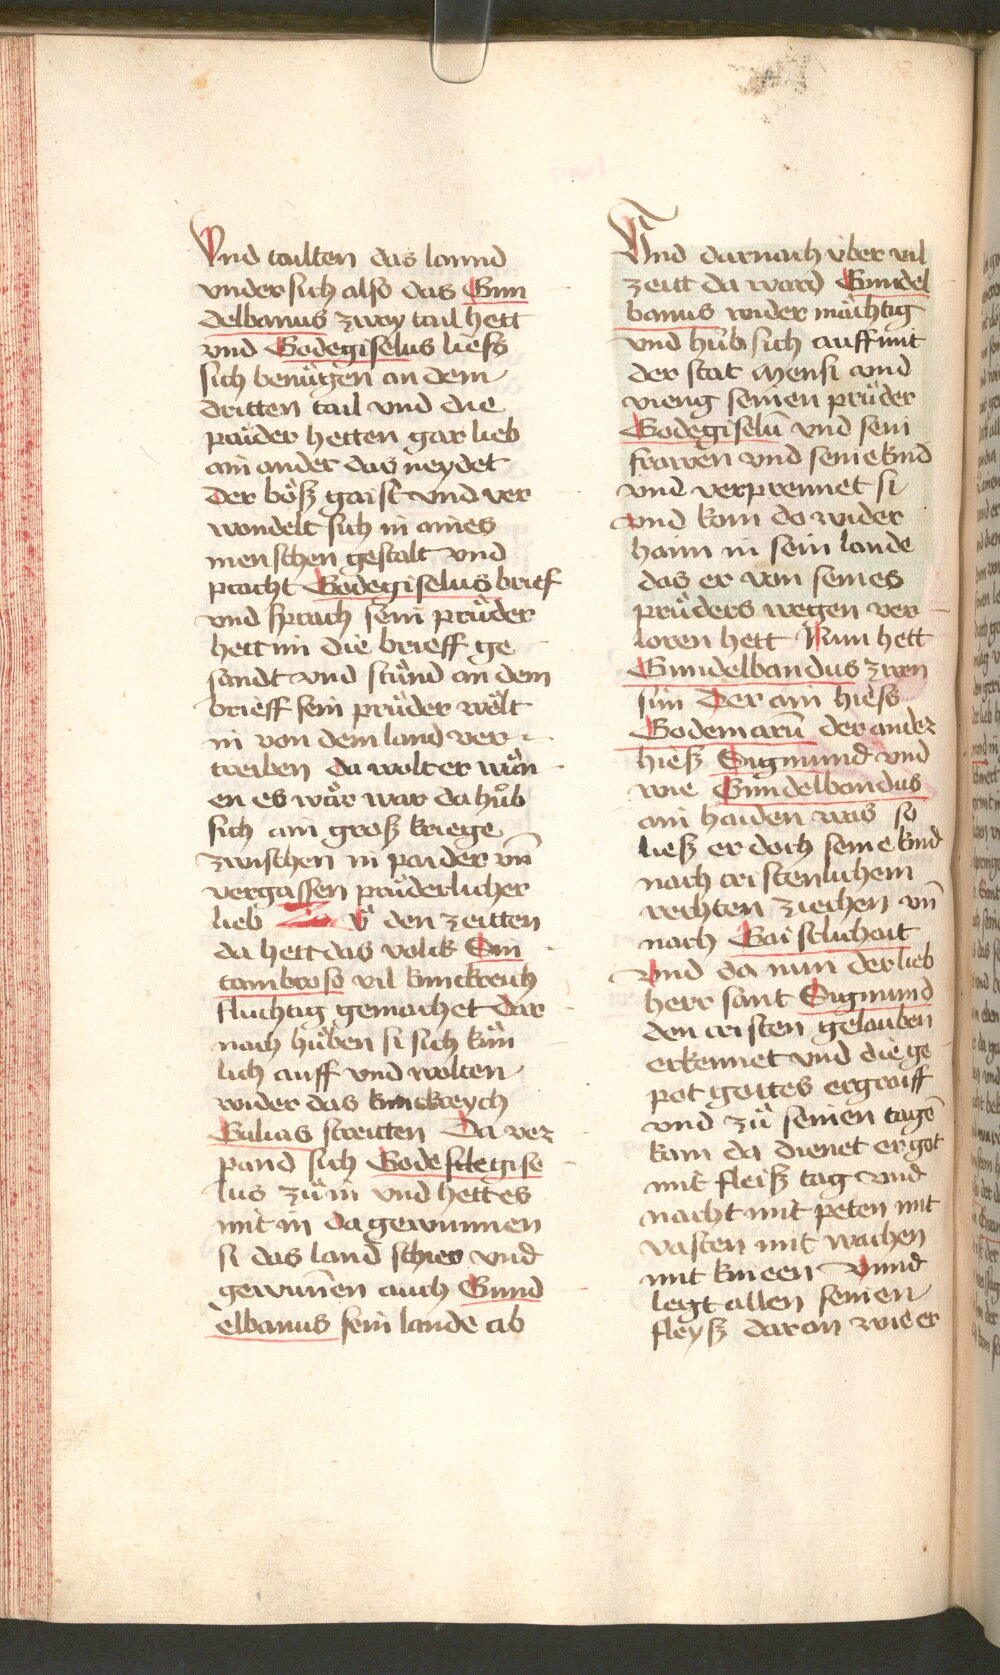 Vnd tailten das lannd
vnder sich also das Gun
delbanus zway tail hett
vnd Godegiselus liess
sich benügen an dem
dritten tail vnd die
prüder hetten gar lieb
ain ander das neydet
der böß gaist vnd ver
wandelt sich in aines
menschen gestalt vnd
pracht Godegiselus brief
vnd sprach sein prüder
hett im die brieff ge
sandt vnd stünd an dem
brieff sein prüder wölt
in von dem land ver
treiben da wolt er wän
en es wär war da hůb
sich ain groß kriege
zwischen in paider vn̄
vergassen prüderlicher
lieb Zu den zeitten
da hett das volck Sin
tambroso vil kunckreich
fluchtig gemachet Dar
nach hůben si sich kün
lich auff vnd wolten
wider das kunckreych
Galias streitten Da ver
pand sich Godegise
lus zů in vnd hett es
mit in da gewunnen
si das land schier vnd
gewun̄en auch Gund
elbanus sein lande ab
Vnd darnach vber vil
zeitt da ward Gundel
banus wider mächtig
vnd hůb sich auff mit
der stat Mensi vnd
vieng seinen prüder
Godegiselū vnd sein
frawen vnd seine kind
vnd verprennet si
vnd kom do wider
haim in sein lande
das er von seines
prüders wegen ver
loren hett Nun hett
Gundelbandus zwen
sün Der ain hiess
Godemarū der ander
hieß Sigmund vnd
wie Gundelbandus
ain haiden was so
ließ er doch seine kind
nach cristenlichem
rechten ziechen vn̄
nach Gaistlichait
Vnd da nun der lieb
herr sant Sigmund
den cristen gelauben
erkennet vnd die ge
pot gottes ergraiff
vnd zů seinen tagē
kam da dienet er got
mit fleiß tag vnd
nacht mit peten mit
vasten mit wachen
mit knieen Vnnd
legt allen seinen
fleyß daran wie er